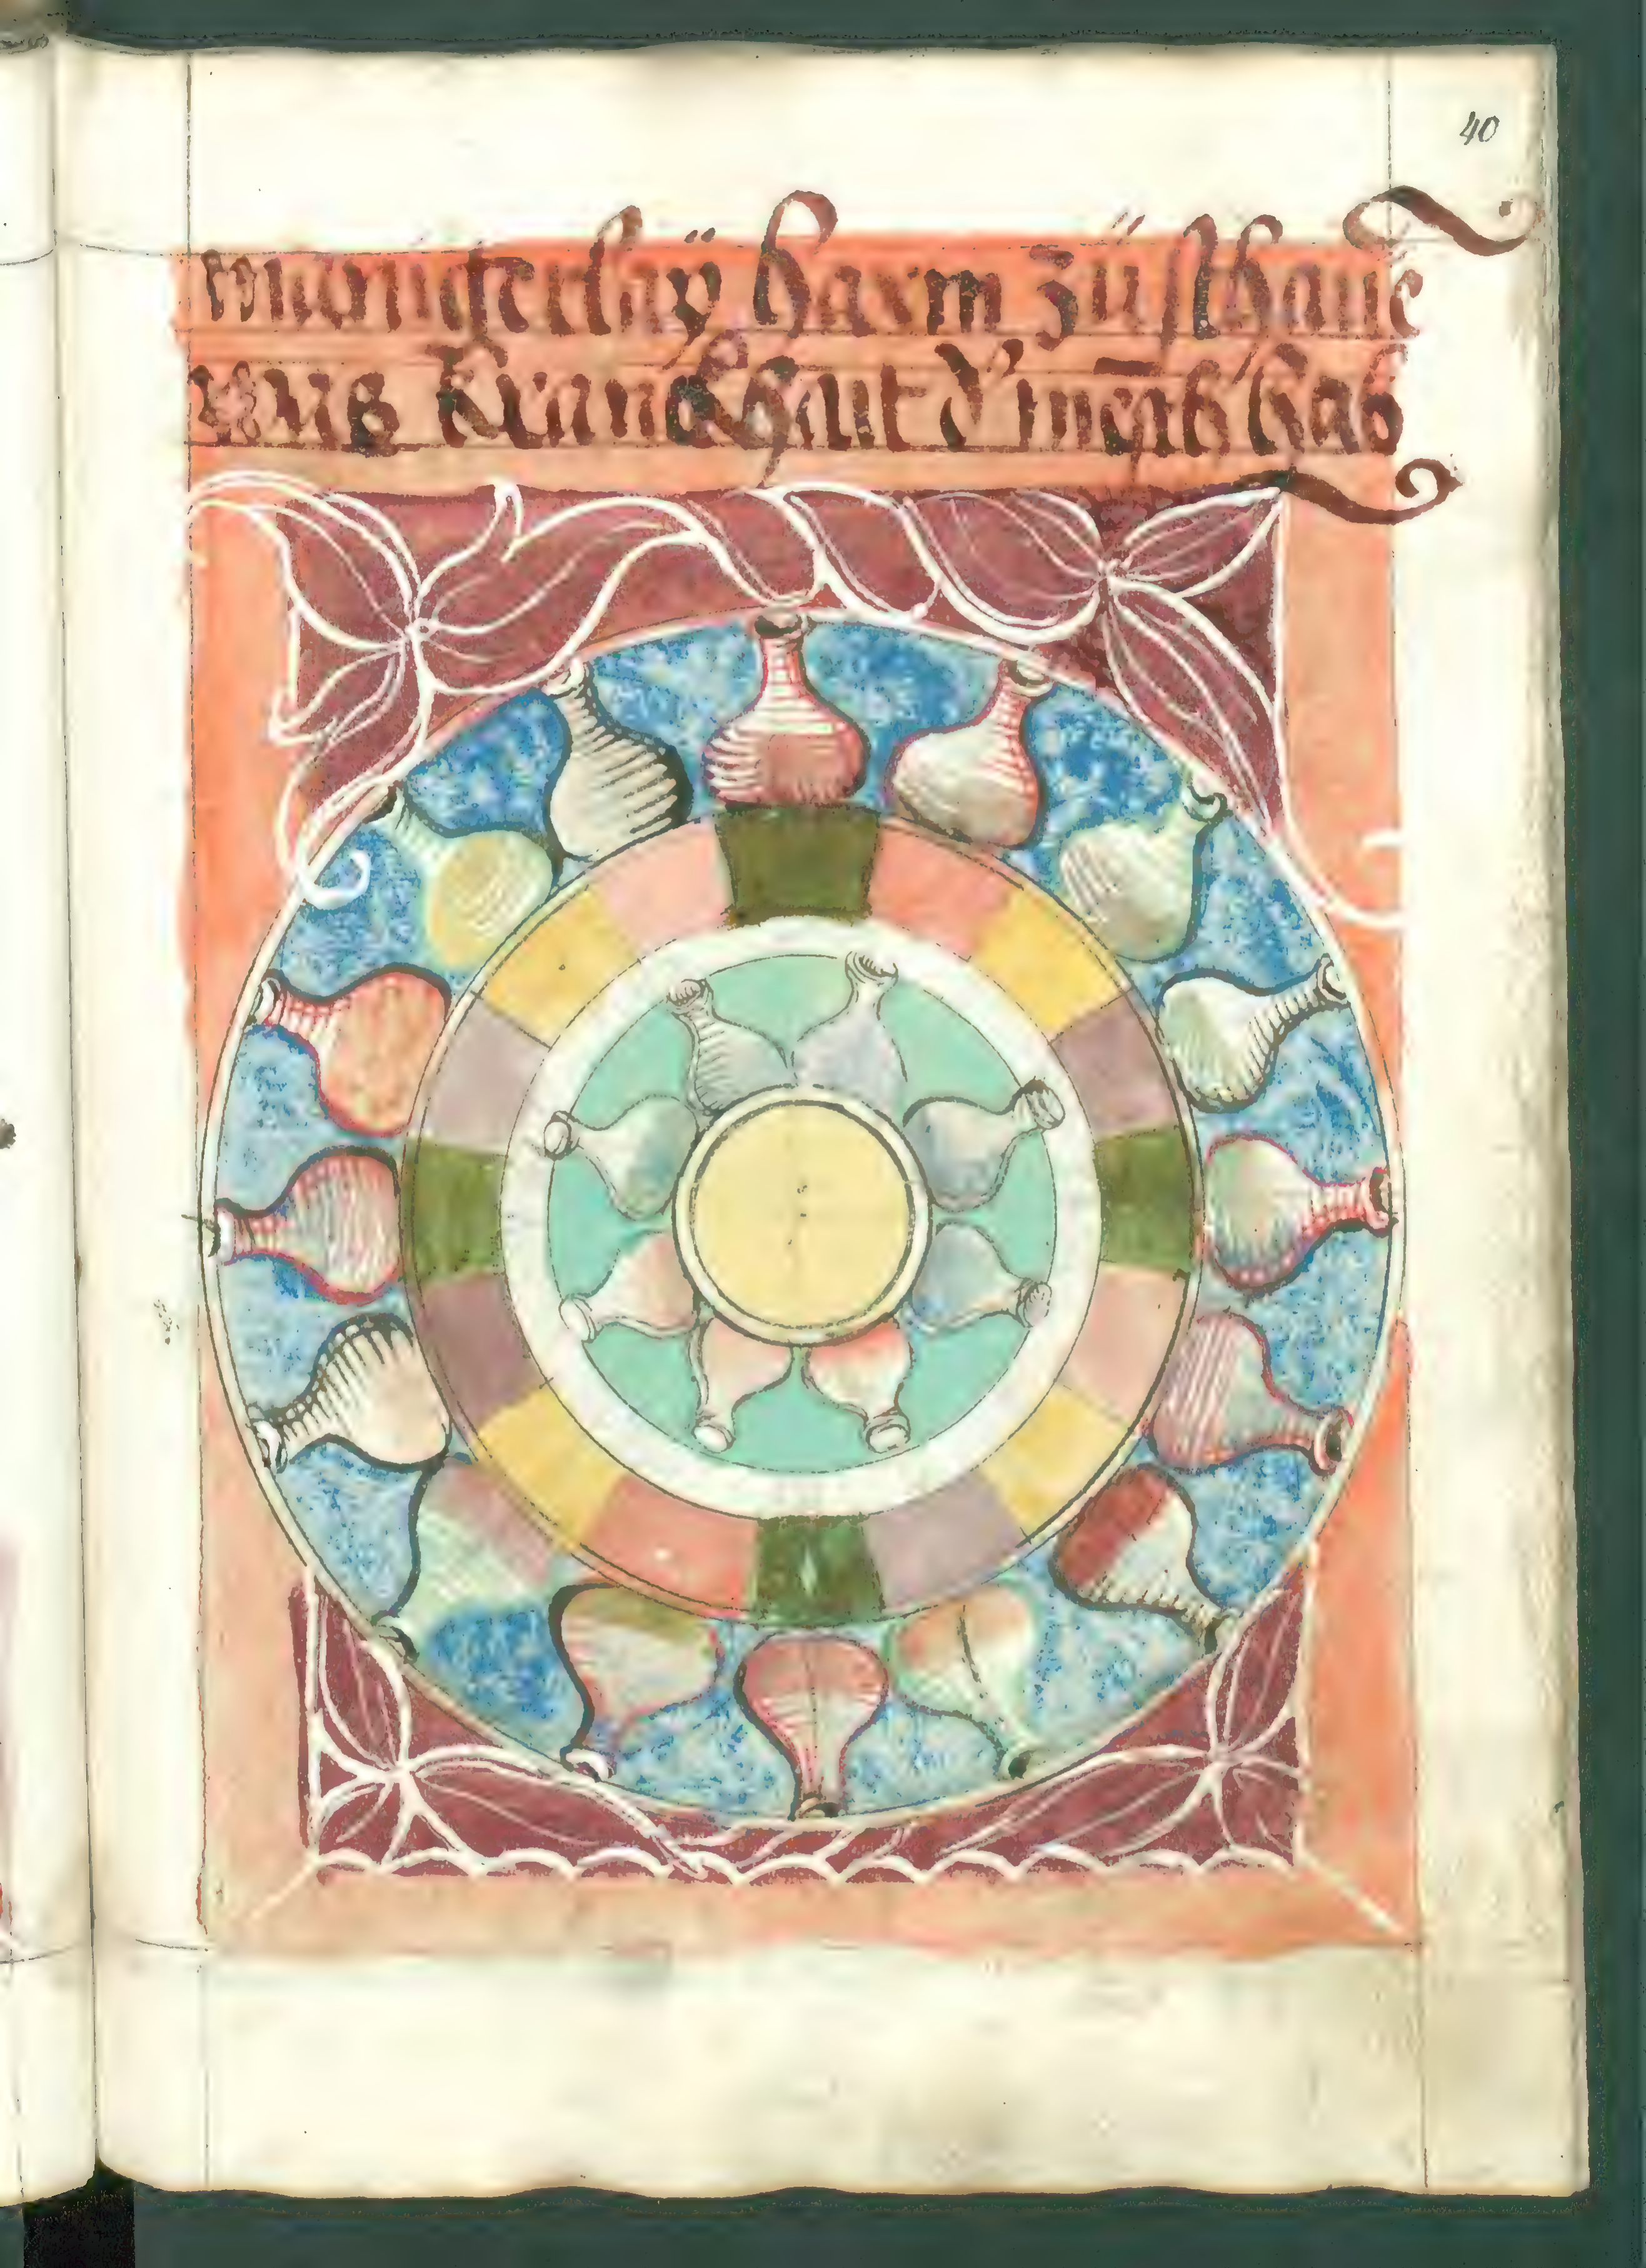 40
mangerlaÿ harm zü schauē
was kranckhait d' mēsch hab